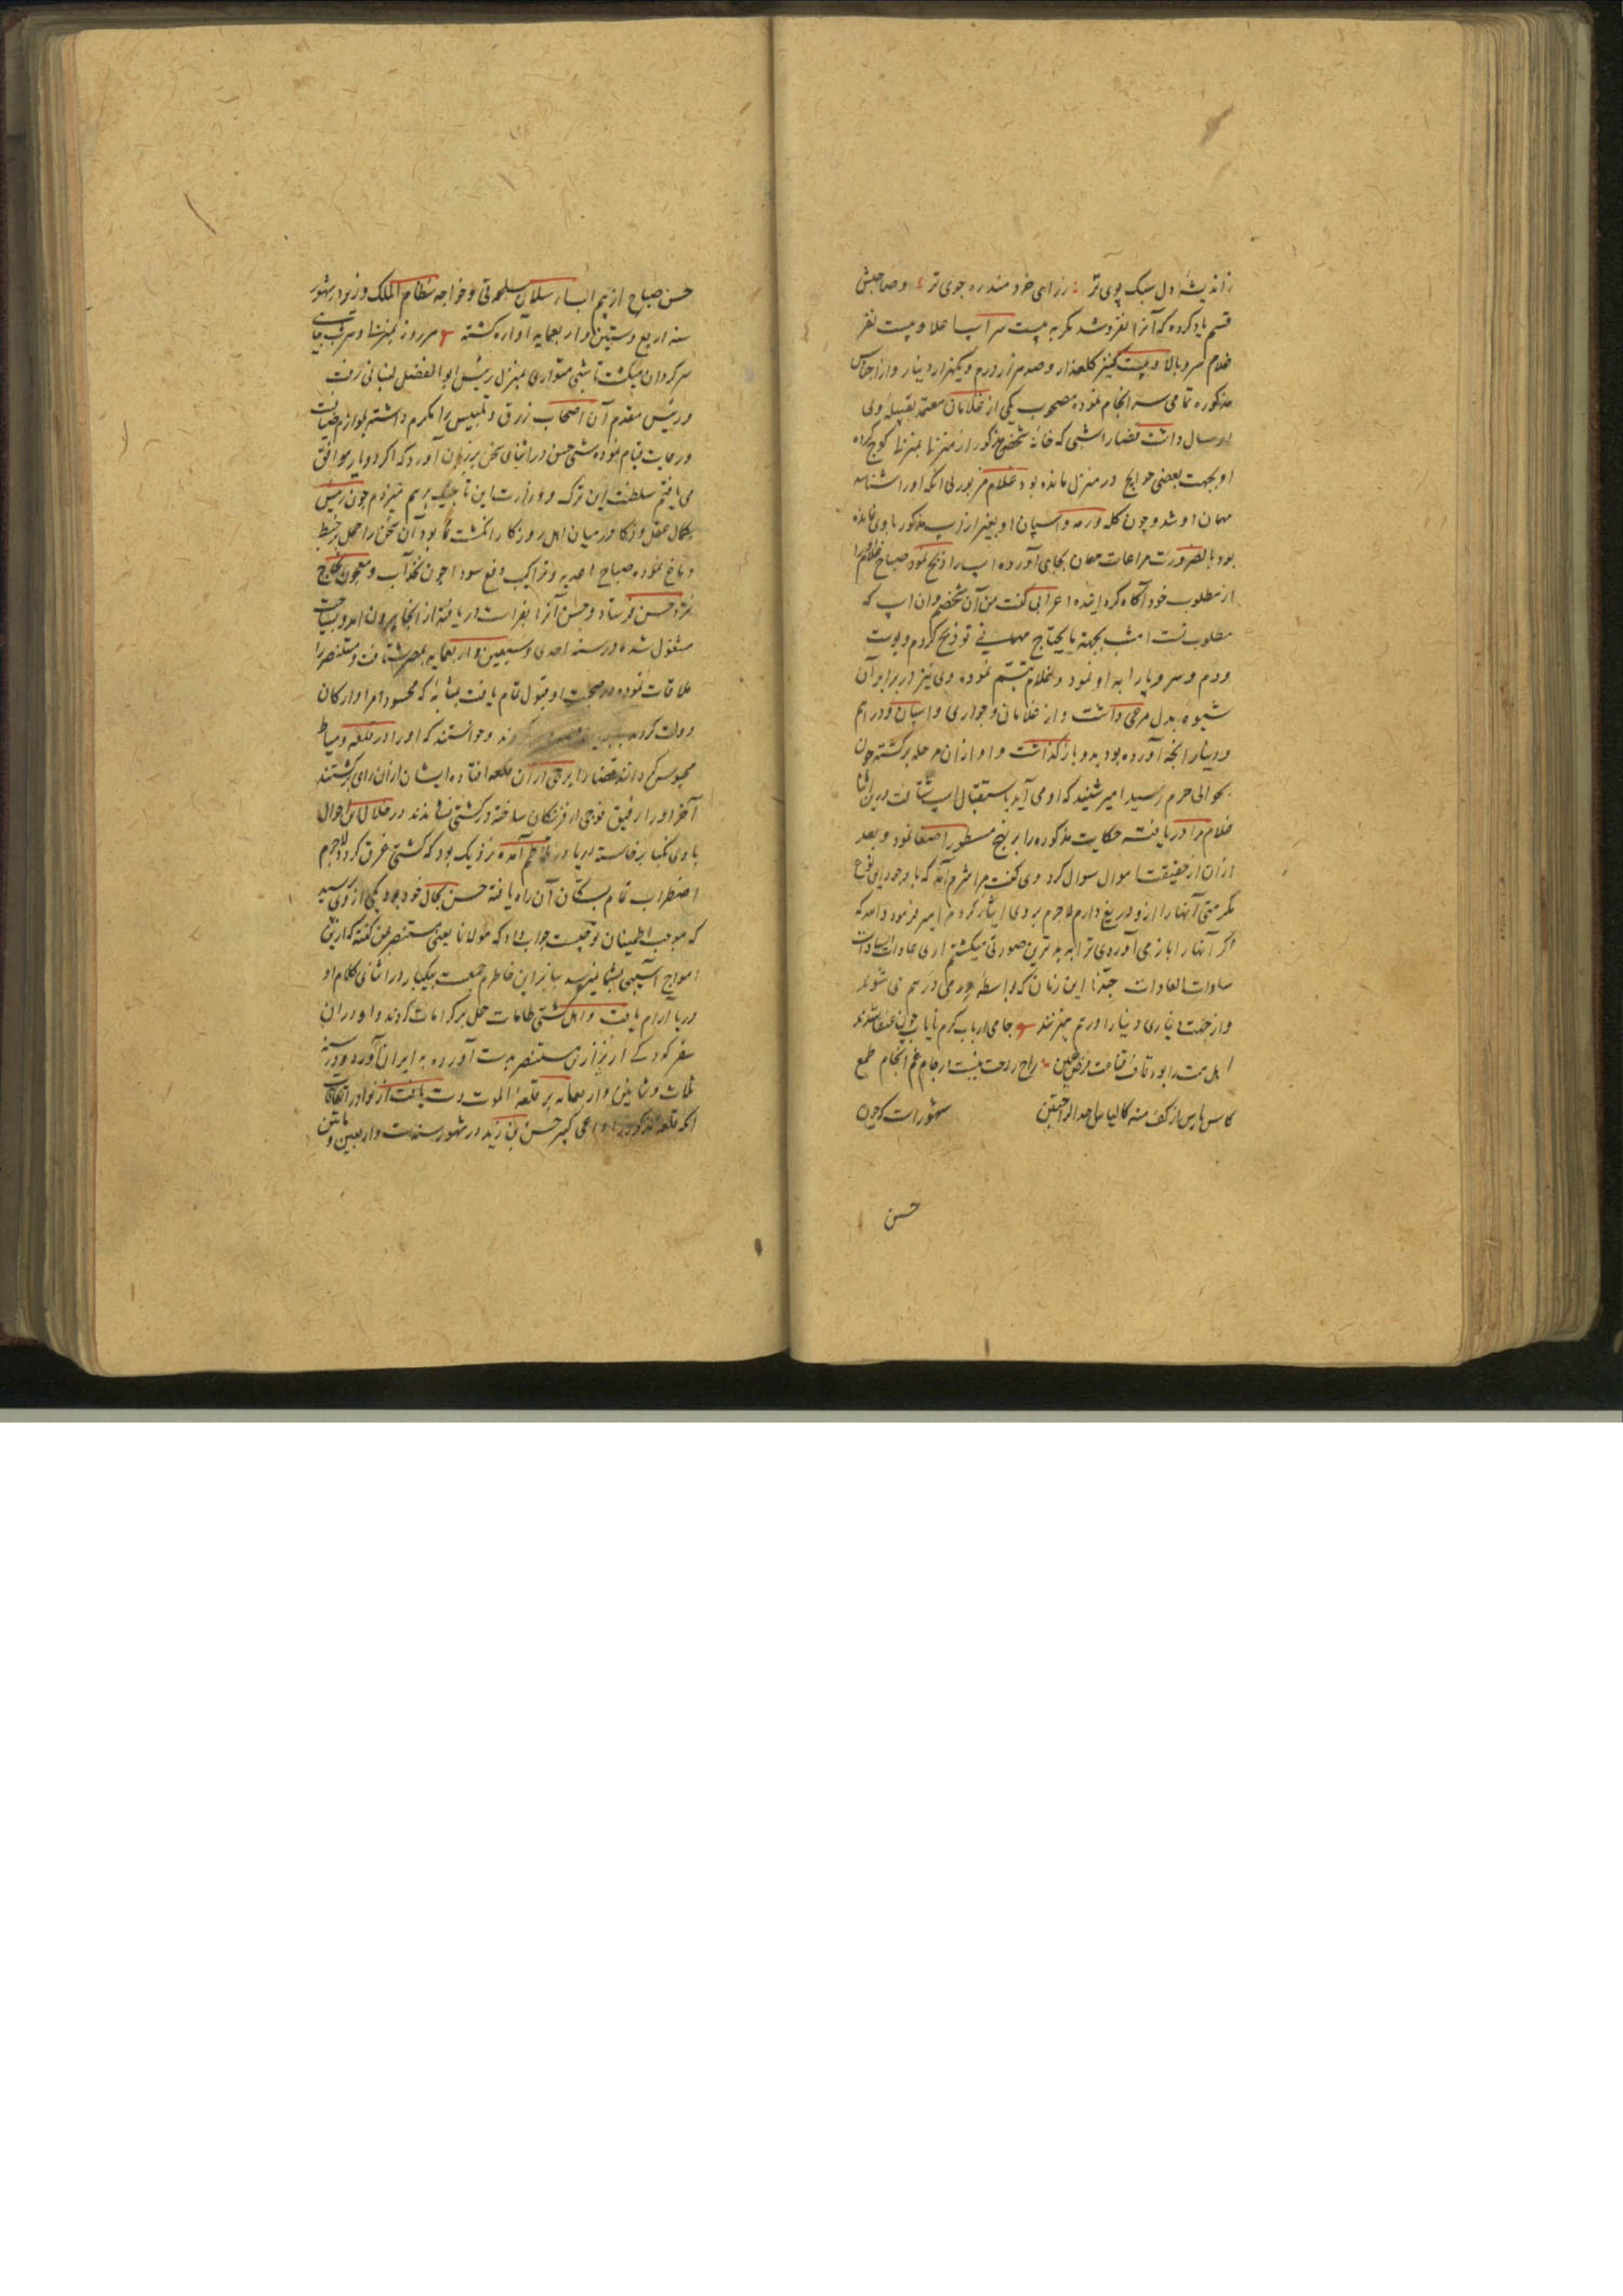 ز اندیشهٔ دل سبک پوی تر ز رای خردمند ره جوی تر و صاحبش
قسم یاد کرده که آنرا نفروشد مگر به بیست سر اسپ با علا و بیست نفر
غلام سرو بالا و بیست کنیز گلعذار و صد هزار درم و یکهزار دینار و از اجناس
مذکوره تمامی سرانجام نموده مصحوب یکی از غلامان معتمد بقبیله ولی
ارسال داشت قضا را شبی که خانه شخص مذکور از منزلها بمنزلها کوچ کرده
او بجهت بعضی حوایج در منزل مانده بود غلام مزبور بی آنکه او را شناسد
مهمان او شد و چون گله و رمه و اسپان او بغیر از اسپ مذکور با وی نمانده
بود بالضرورت مراعات مهمان بجای آورده اسپ را ذبح نمود صباح غلام او را
از مطلوب خود آگاه گردانیده اعرابی گفت من آن شخصم و آن اسپ که
مطلوب تست امشب بجهة مایحتاج مهمانی تو ذبح کردم و پوست
و دم و سر و پا را به او نمود و غلام تبسم نموده وی نیز در برابر آن
شیوه بدل مرعی داشت و از غلامان و جواری و اسپان و دراهم
و دینار آنچه آورده بود بدو باز گذاشت و او از آن مرحله برگشته چون
بحوالی حرم رسید امیر شنید که او می آید باستقبال اسپ شتافت درین اثنا
غلام را دریافته حکایت مذکوره را بر نهج مسطور اصغا نمود و بعد
از آن از حقیقت اموال سوال کرد وی گفت مرا شرم آمد که با وجود این نوع
مکرمتی آنها را ازو دریغ دارم لاجرم بر وی ایثار کردم امیر فرمود والله که
اگر آنها را باز می آوردی ترا به بدترین صورتی میکشتم آری عادات السادات
سادات العادات حبذا این زمان که بواسطه درمی درهم می شوند
و از جهت دیناری دینار او درهم میزنند جامی ارباب کرم نایاب چون عنقا شدند
اهل همت را بود قاف قناعت فرض عین راح راحت نیست در جام غم انجام طمع
کاس یاس از کف منه کالیاس احد الراحتین مشهورات که چون
حسن
حسن صباح از بیم الب ارسلان سلجوقی و خواجه نظام الملک وزیر او در شهور
سنه اربع و ستین و اربعمایه آواره گشته هر روز بمنزلها و هر شب بجایی
سرگردان میگشت تا شبی متواری بمنزل رئیس ابوالفضل لنبانی رفت
و رئیس مقدم آن اصحاب زرق و تلبیس را مکرم داشته بلوازم ضیافت
و رعایت قیام نموده شبی حسن در اثنای سخن بر زبان آورد که اگر دو یار موافق
می یافتم سلطنت این ترک و وزارت این تاجیک برهم میزدم چون رئیس
بکمال عقل و ذکا در میان اهل روزگار انگشت نما بود آن سخن را حمل بر خبط
دماغ نموده صباح اغذیه و تراکیب دفع سودا چون نخداب و معجون نجاح
نزد حسن فرستاد و حسن آنرا بفراست دریافته از آنجا بیرون آمد و بسیاحت
مشغول شده در سنه احدی و سبعین و اربعمایه بمصر شتافت و مستنصر را
ملاقات نموده در صحبت او قبول تمام یافت بمثابهٔ که محسود امرا و ارکان
دولت گردید و خواستند که او را در قلعه دمیاط
محبوس گردانند قضا را برجی از آن قلعه افتاده ایشان از آن رای برگشتند
آخر او را رفیق فوجی از فرنگان ساخته در کشتی نشاندند در خلال این احوال
بادی نکبا برخاسته دریا در تلاطم آمده نزدیک بود که کشتی غرق گردد لاجرم
اضطراب تمام بسکان آن راه یافته حسن بحال خود بود یکی از وی پرسید
که موجب اطمینان تو چیست جواب داد که مولانا یعنی مستنصر بمن گفته که ازین
امواج آسیبی بشما نمیرسد بنابر این خاطرم جمعست بیکبار در اثنای کلام او
دریا آرام یافت و اهل کشتی طامات حمل بر کرامات کردند و او در آن
سفر کودکی از نزاری مستنصر بدست آورده به ایران آورد و در سنه
ثلاث و ثمانین و اربعمایه بر قلعهٔ الموت دست یافت از نوادر اتفاقات
آنکه قلعه مذکوره را داعی کبیر حسن بن زید در شهور سنه ست و اربعین و مائتین